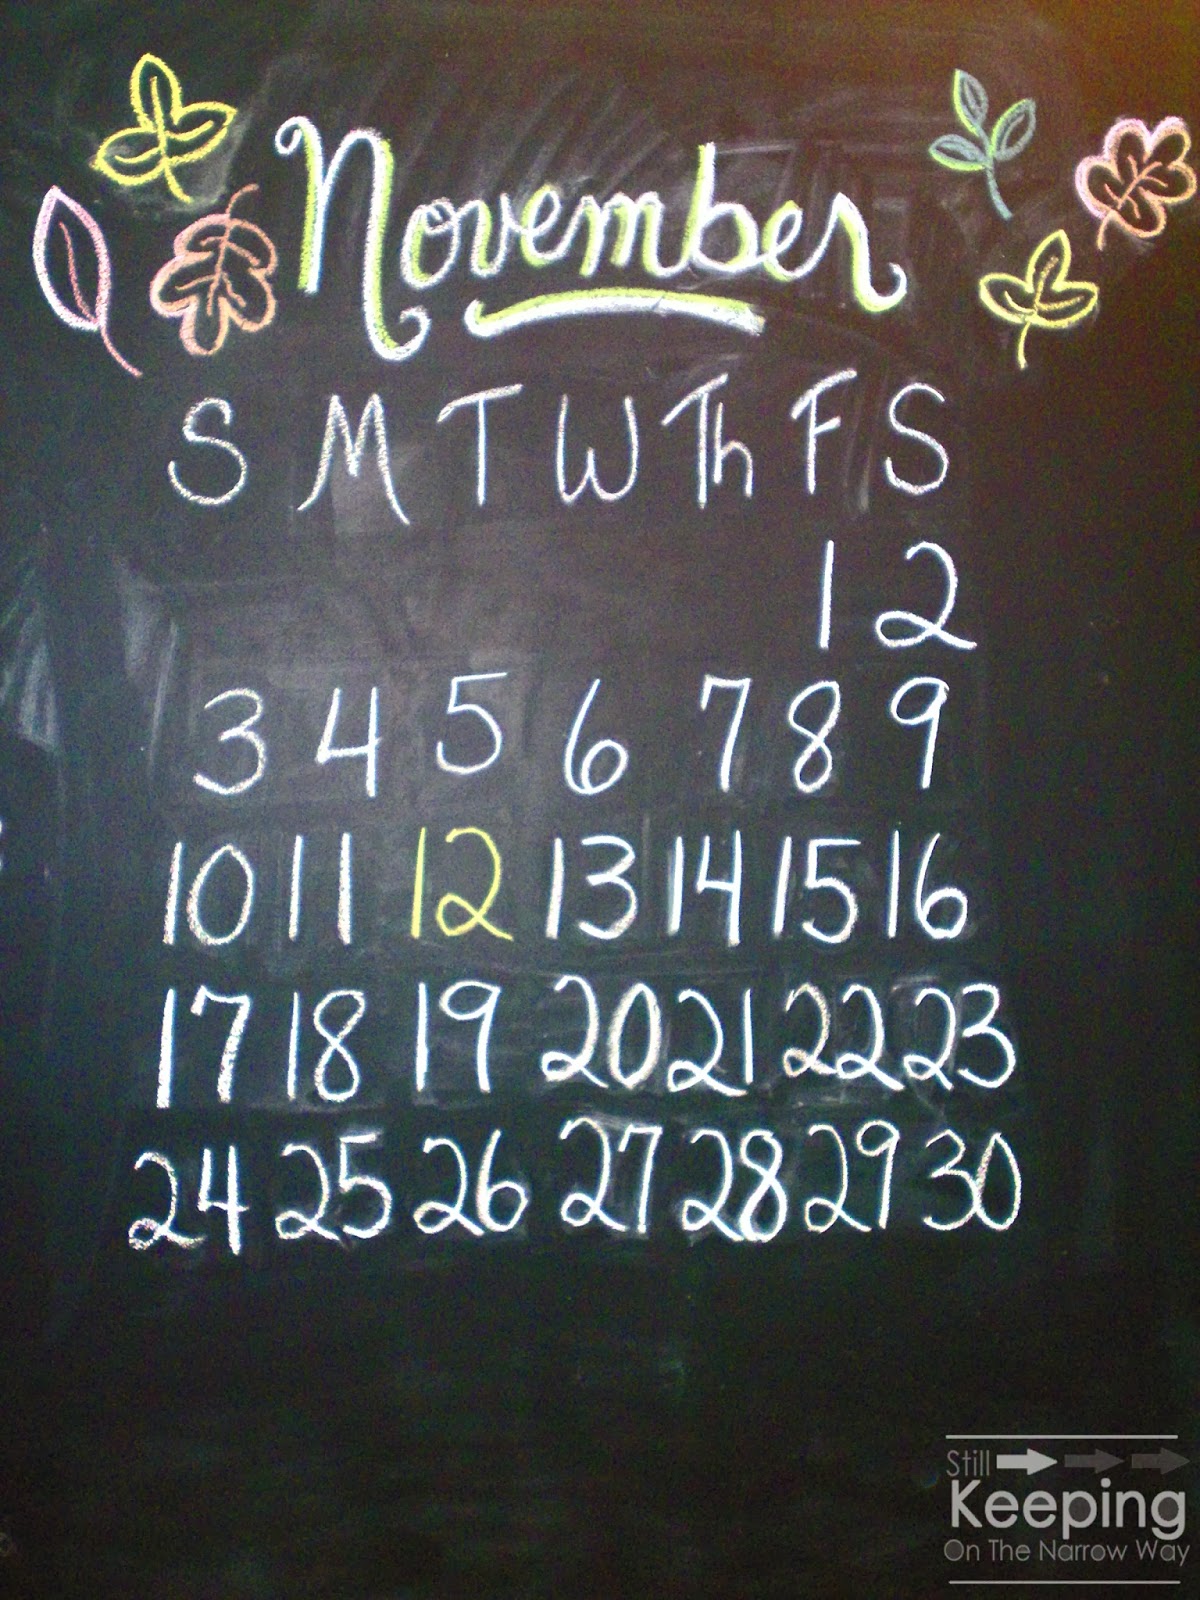 November
S M T W Th F S
1 2
3 4 5 6 7 8 9
10 11 12 13 14 15 16
17 18 19 20 21 22 23
24 25 26 27 28 29 30
Still
Keeping
On The Narrow Way